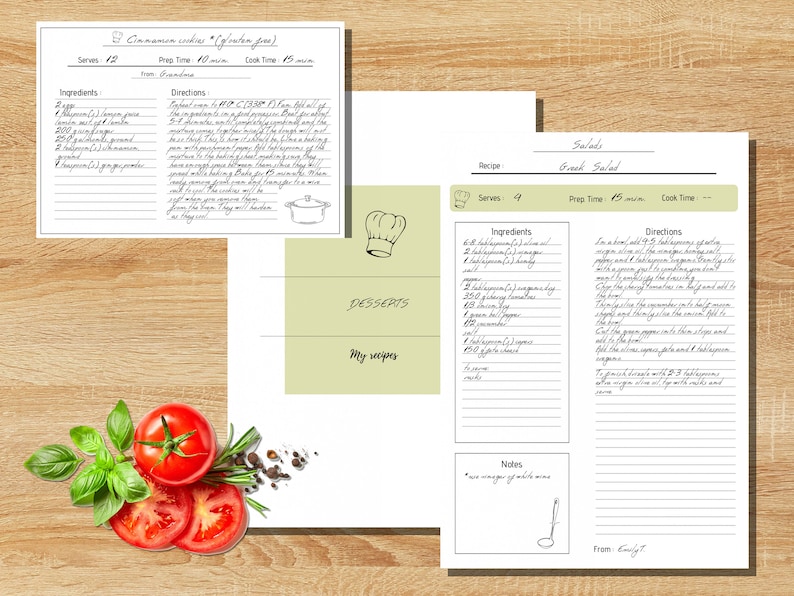 Cinnamon cookies *(glouten free)
Serves : 12 Prep. Time : 10 min. Cook Time : 15 min.
From : Grandma
Ingredients :
2 eggs
1 teaspoon(s) lemon juice
lemon zest, of 1 lemon
200 g icing sugar
250 g almonds, ground
2 teaspoon(s) cinnamon,
ground
1 teaspoon(s) ginger powder
Directions :
Preheat oven to 170° C (338° F) Fan. Add all of
the ingredients in a food processor. Beat for about
5-7 minutes, until completely combined and the
mixture comes together nicely. The dough will not
be as thick. This is how it should be. Line a baking
pan with parchment paper. Add tablespoons of the
mixture to the baking sheet, making sure they
have enough space between them, since they will
spread while baking. Bake for 15 minutes. When
ready, remove from oven and transfer to a wire
rack to cool. The cookies will be
soft when you remove them
from the oven. They will harden
as they cool.
DESSERTS
My recipes
Salads
Recipe : Greek Salad
Serves : 4 Prep. Time : 15 min. Cook Time : --
Ingredients
6-8 tablespoon(s) olive oil
2 tablespoon(s) vinegar
1 tablespoon(s) honey
salt
pepper
2 tablespoon(s) oregano, dry
350 g cherry tomatoes
1/3 onion, dry
1 green bell pepper
1/2 cucumber
salt
1 tablespoon(s) capers
150 g feta cheese
to serve
rusks
Directions
In a bowl, add 4-5 tablespoons of extra
virgin olive oil, the vinegar, honey, salt,
pepper and 1 tablespoon oregano. Gently stir
with a spoon just to combine, you don't
want to emulsify the dressing.
Chop the cherry tomatoes in half and add to
the bowl.
Thinly slice the cucumber into half-moon
shapes and thinly slice the onion. Add to
the bowl.
Cut the green pepper into thin strips and
add to the bowl.
Add the olives, capers, feta and 1 tablespoon
oregano.
To finish, drizzle with 2-3 tablespoons
extra virgin olive oil, top with rusks and
serve.
Notes
*use vinegar of white wine
From : Emily T.